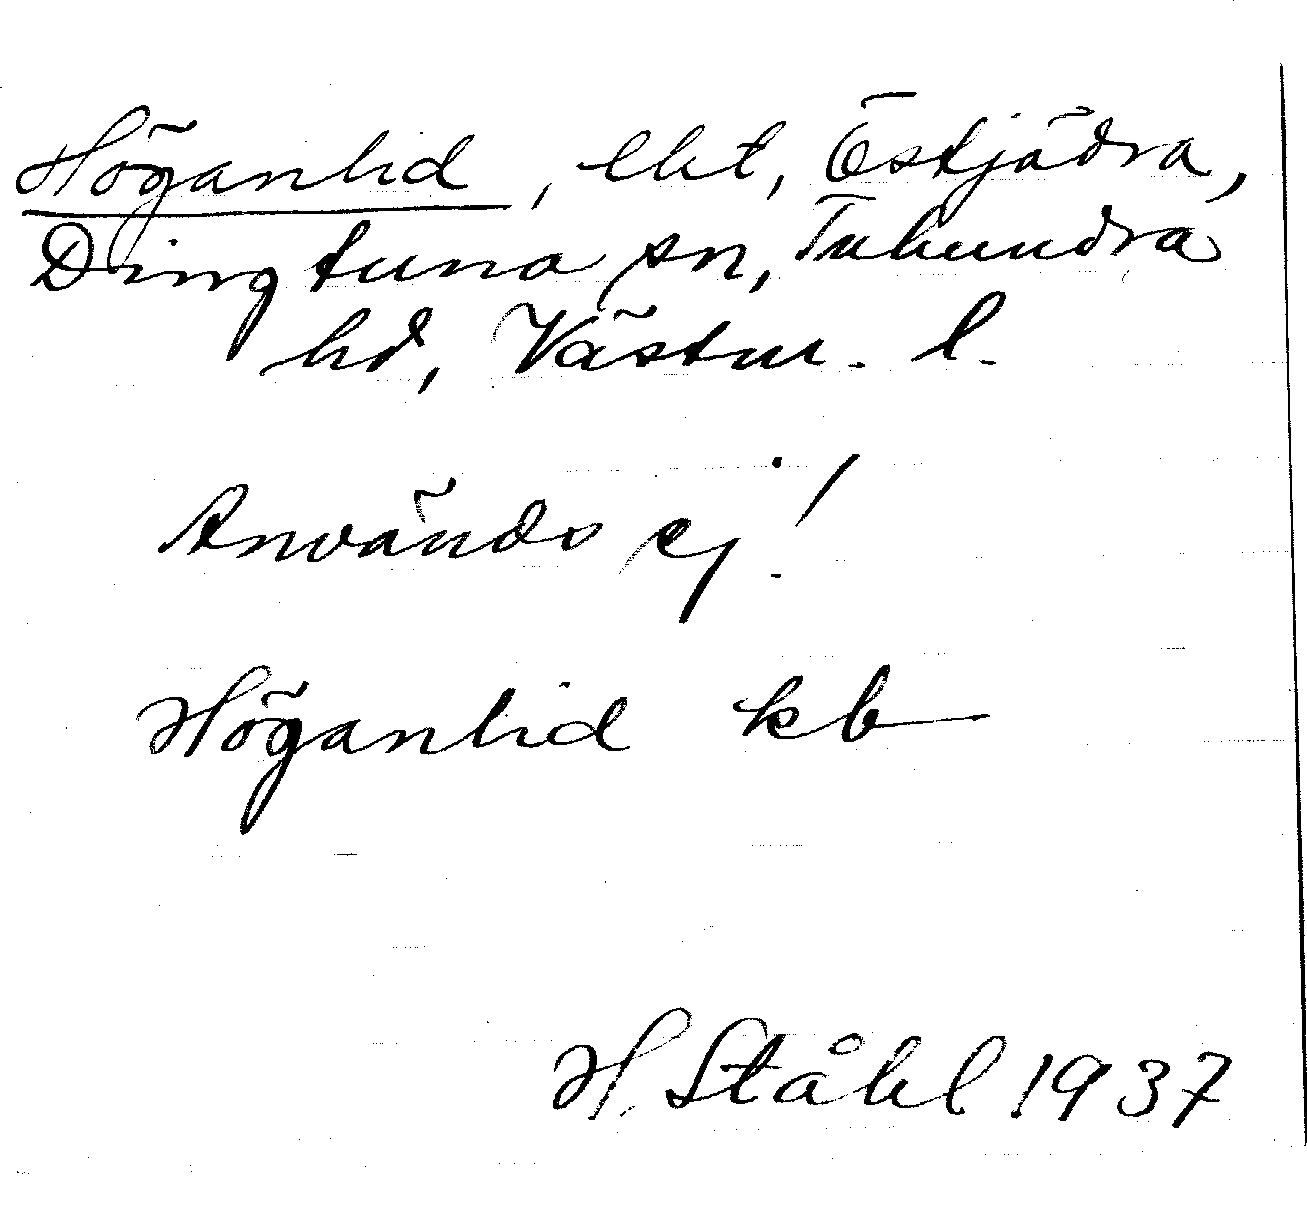 Höganlid, lht, Östjädra,
Dingtuna sn, Tuhundra
hd, Västm. l.
Används ej!
Höganlid kb
H. Ståhl 1937